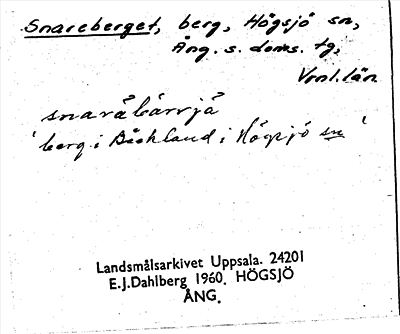 Snareberget, berg, Högsjö sn,
Ång. s. doms. tg,
Vnl. län
snaråbärrjå
'berg i Bäckland i Högsjö sn'
Landsmålsarkivet Uppsala. 24201
E.J.Dahlberg 1960. HÖGSJÖ
ÅNG.